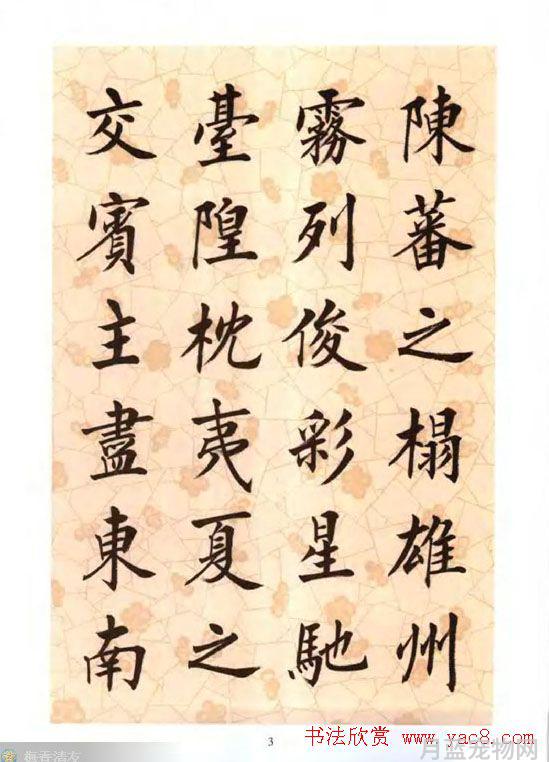 陳蕃之榻雄州
霧列俊彩星馳
臺隍枕夷夏之
交賓主盡東南
3
书法欣赏 www.yac8.com
月蓝宠物网
梅香清友